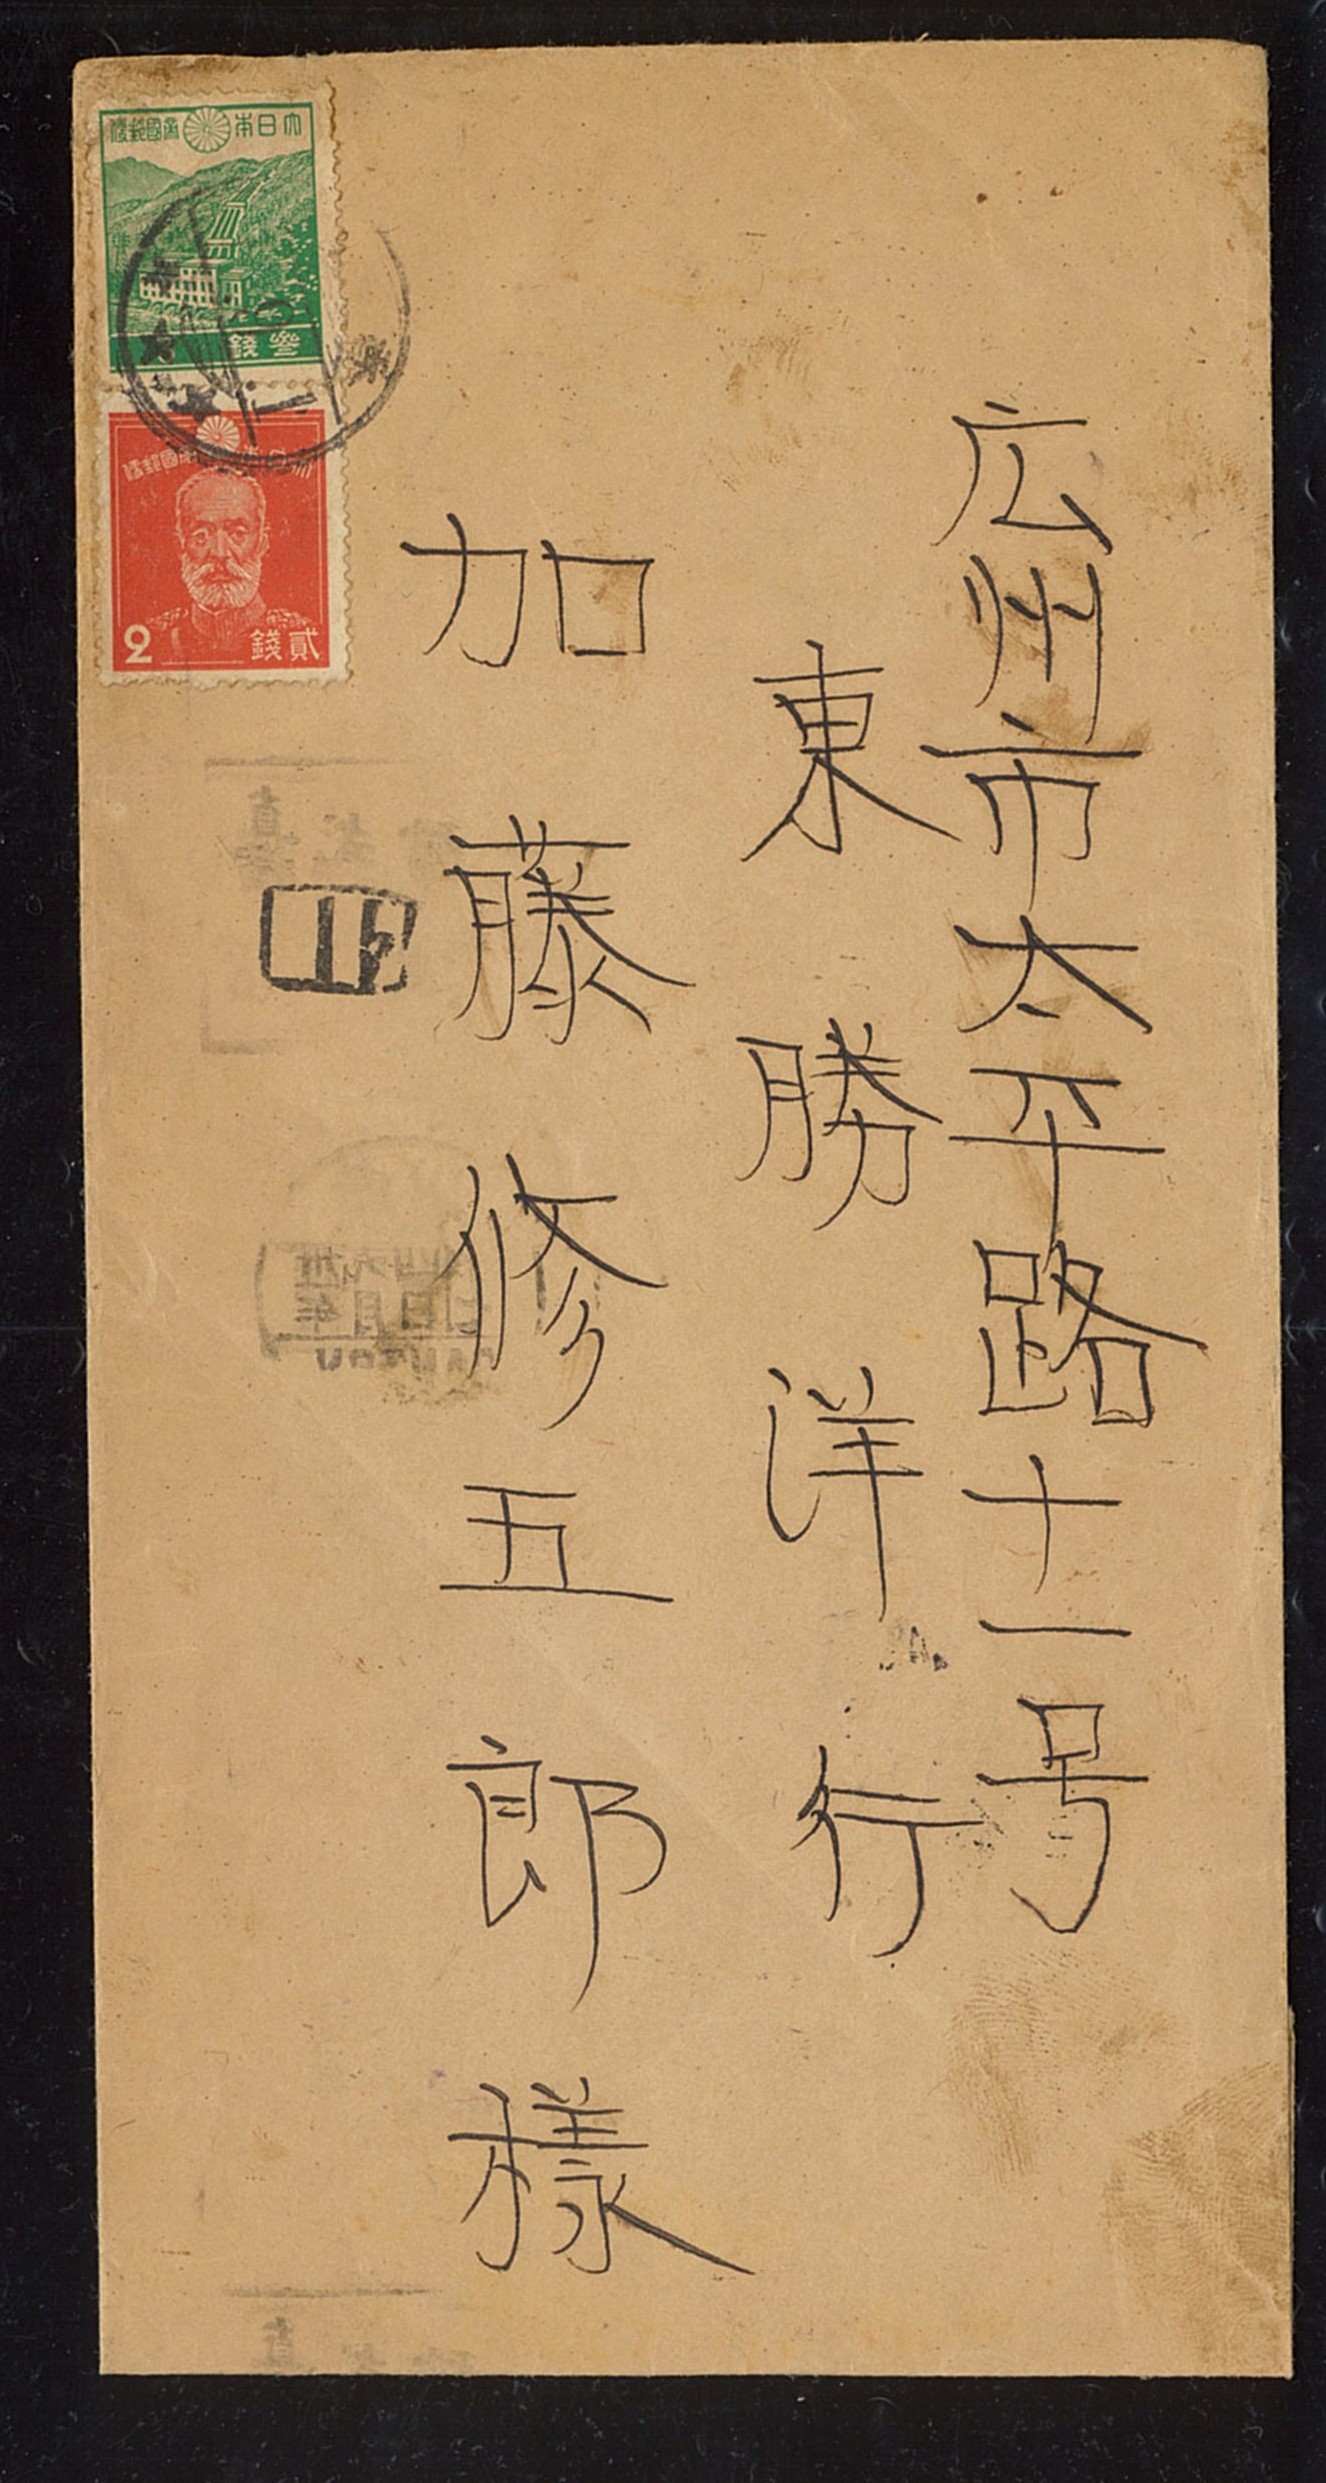 広州市太平路十一号
東勝洋行
加藤修五郎様
大日本帝國郵便
参銭
大日本帝國郵便
2 貳銭